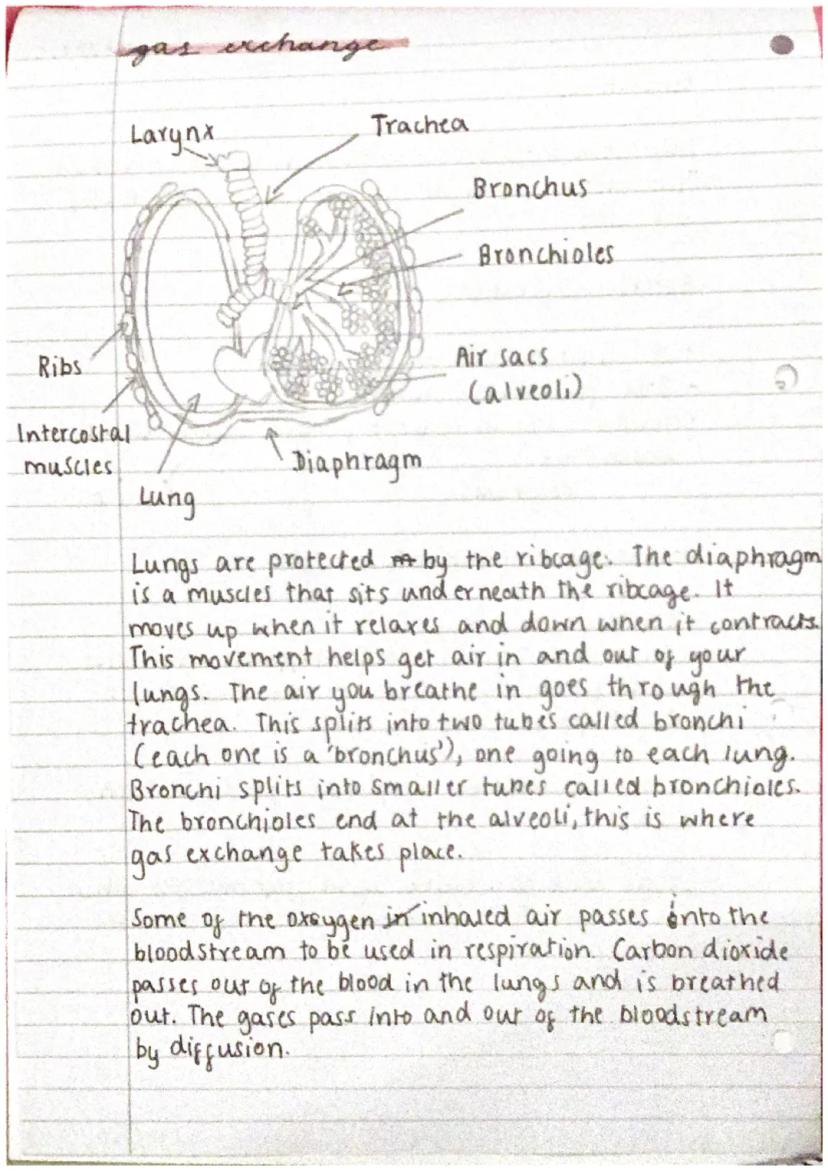 gas exchange
Larynx
Trachea
Bronchus
Bronchioles
Ribs
Air sacs
(alveoli)
Intercostal
muscles
Diaphragm
Lung
Lungs are protected by the ribcage. The diaphragm
is a muscles that sits underneath the ribcage. It
moves up when it relaxes and down when it contracts.
This movement helps get air in and out of your
lungs. The air you breathe in goes through the
trachea. This splits into two tubes called bronchi
(each one is a 'bronchus'), one going to each lung.
Bronchi splits into smaller tubes called bronchioles.
The bronchioles end at the alveoli, this is where
gas exchange takes place.
Some of the oxeygen in inhaled air passes into the
bloodstream to be used in respiration. Carbon dioxide
passes out of the blood in the lungs and is breathed
out. The gases pass into and out of the bloodstream
by diffusion.